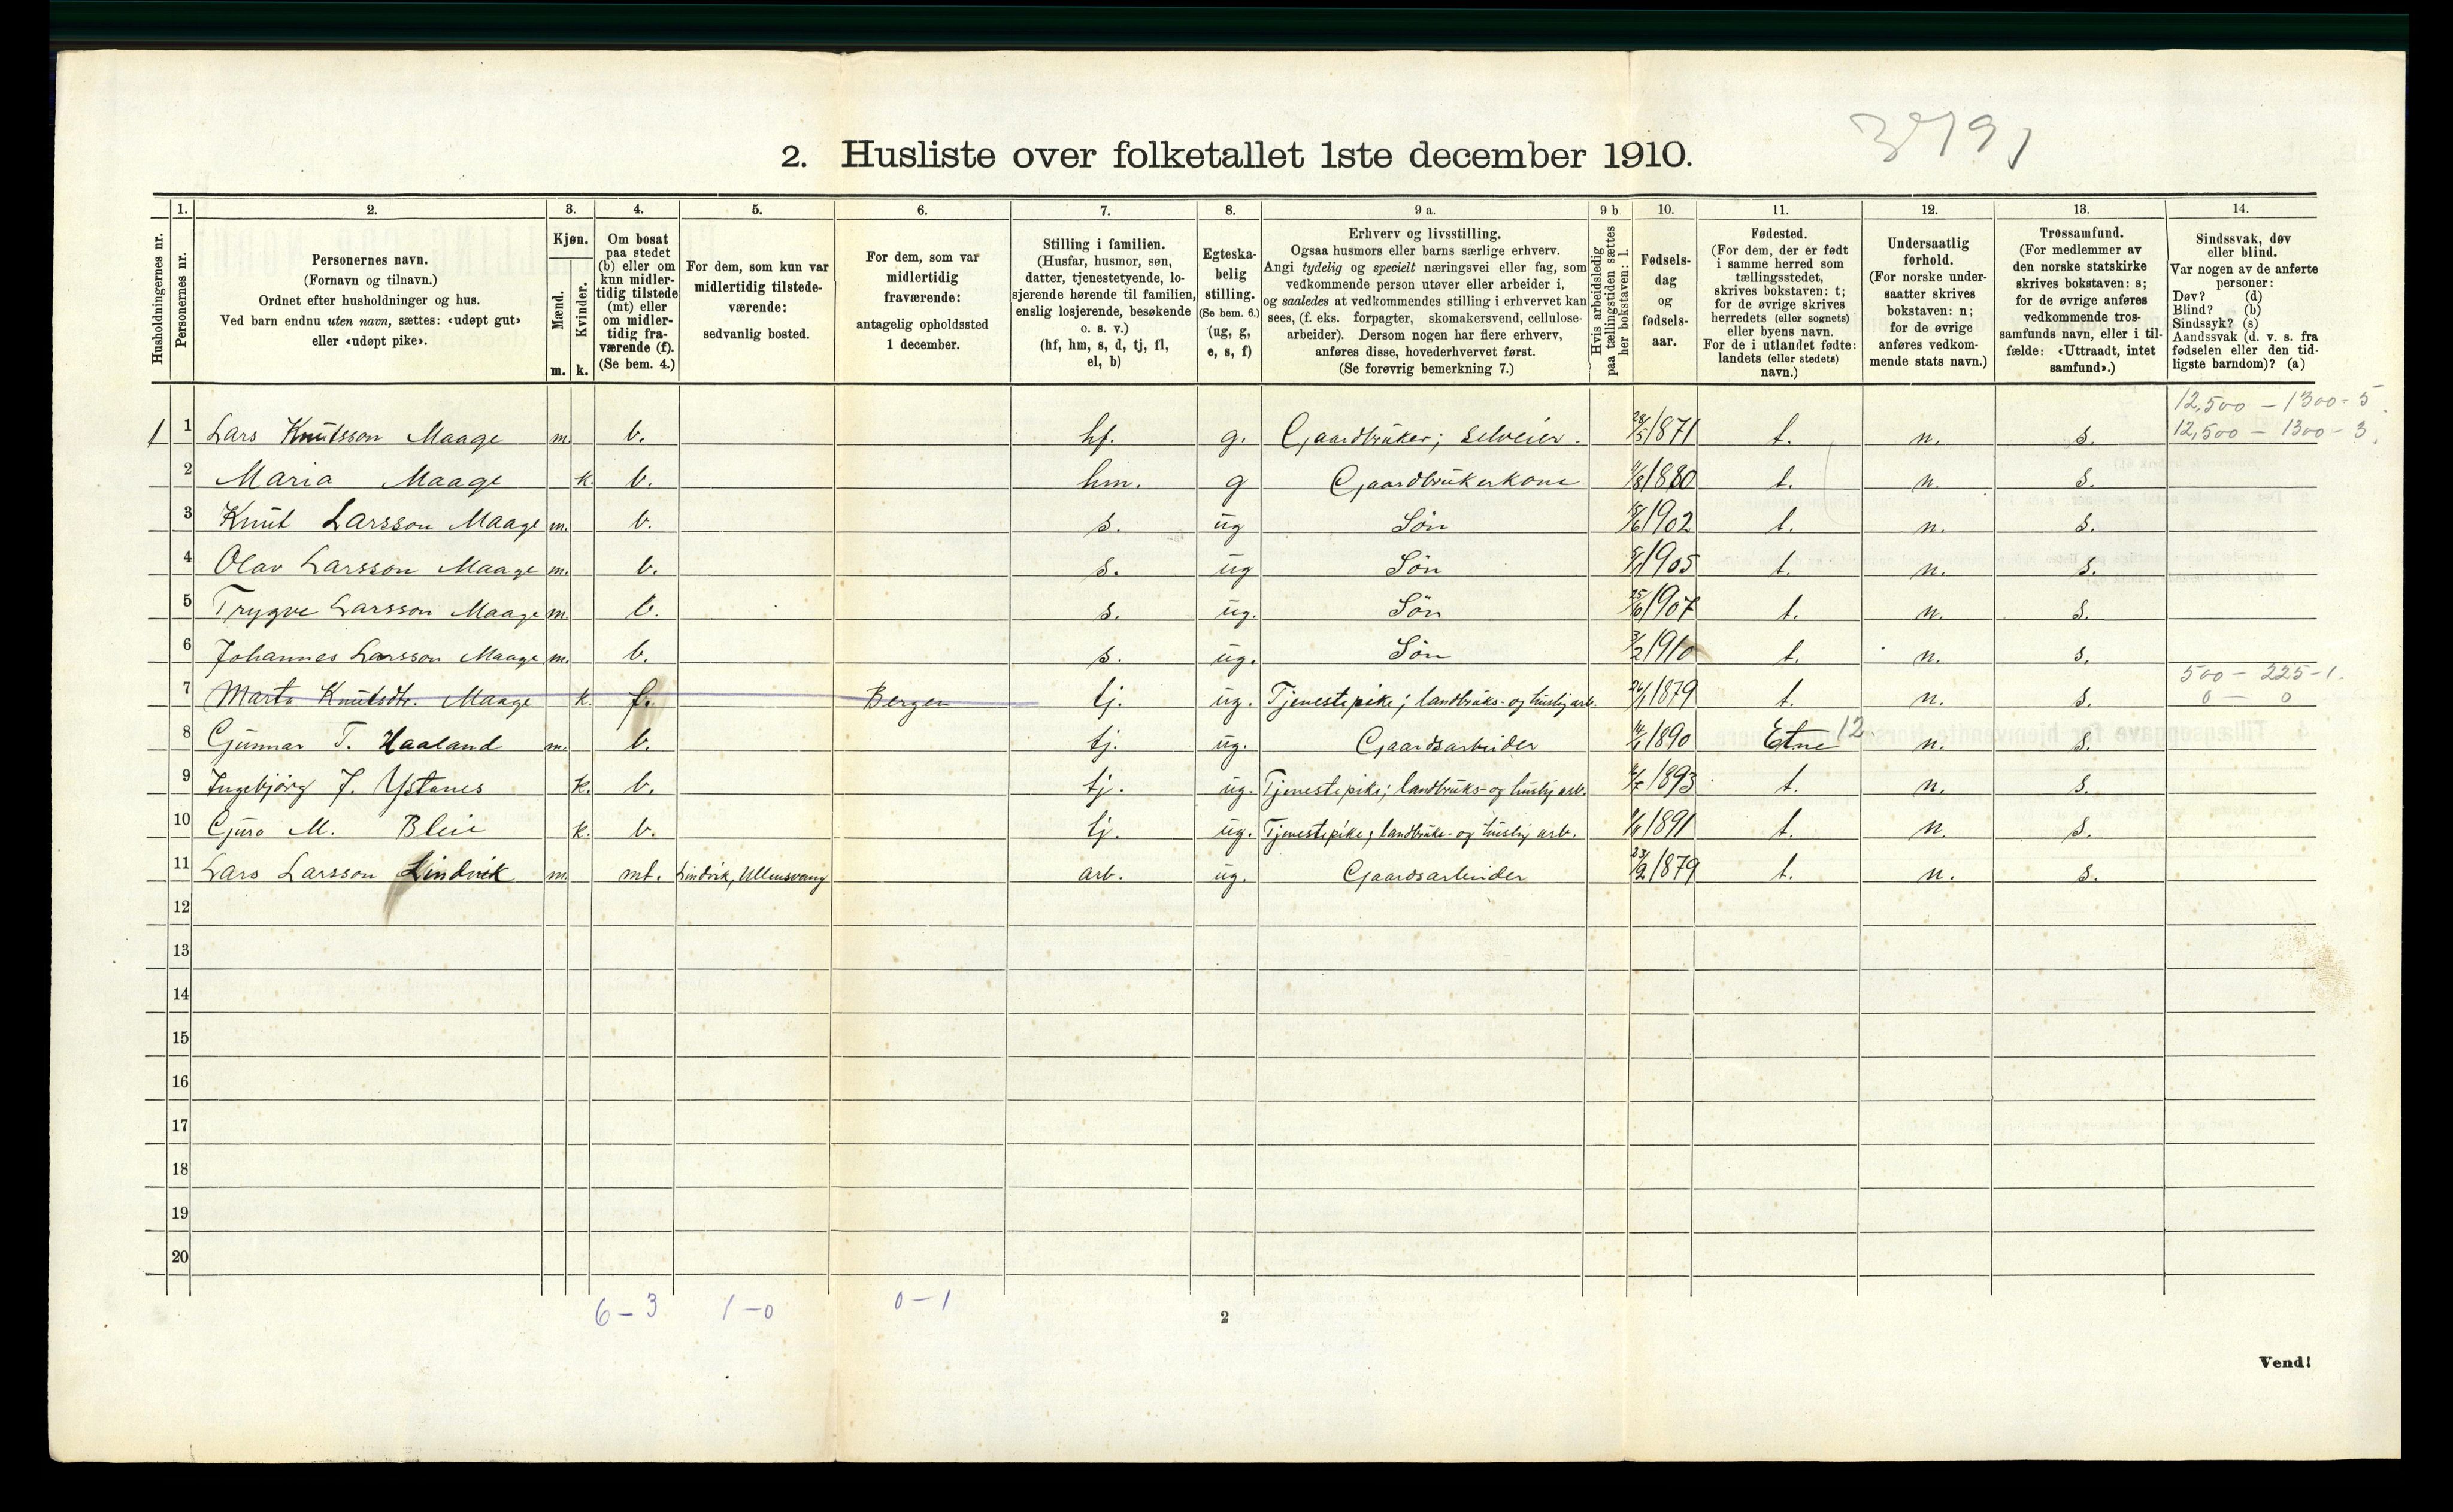 3791
2. Husliste over folketallet 1ste december 1910.
Husholdningernes nr.
1.
Personernes nr.
2.
Personernes navn.
(Fornavn og tilnavn.)
Ordnet efter husholdninger og hus.
Ved barn endnu uten navn, sættes: «udøpt gut»
eller «udøpt pike».
3.
Kjøn.
Mænd.
Kvinder.
m. k.
4.
Om bosat
paa stedet
(b) eller om
kun midler-
tidig tilstede
(mt) eller
om midler-
tidig fra-
værende (f).
(Se bem. 4.)
5.
For dem, som kun var
midlertidig tilstede-
værende:
sedvanlig bosted.
6.
For dem, som var
midlertidig
fraværende:
antagelig opholdssted
1 december.
7.
Stilling i familien.
(Husfar, husmor, søn,
datter, tjenestetyende, lo-
sjerende hørende til familien,
enslig losjerende, besøkende
o. s. v.)
(hf, hm, s, d, tj, fl,
el, b)
8.
Egteska-
belig
stilling.
(Se bem. 6.)
(ug, g,
e, s, f)
9 a.
Erhverv og livsstilling.
Ogsaa husmors eller barns særlige erhverv.
Angi tydelig og specielt næringsvei eller fag, som
vedkommende person utøver eller arbeider i,
og saaledes at vedkommendes stilling i erhvervet kan
sees, (f. eks. forpagter, skomakersvend, cellulose-
arbeider). Dersom nogen har flere erhverv,
anføres disse, hovederhvervet først.
(Se forøvrig bemerkning 7.)
9 b
Hvis arbeidsledig
paa tællingstiden sættes
her bokstaven: l.
10.
Fødsels-
dag
og
fødsels-
aar.
11.
Fødested.
(For dem, der er født
i samme herred som
tællingsstedet,
skrives bokstaven: t;
for de øvrige skrives
herredets (eller sognets)
eller byens navn.
For de i utlandet fødte:
landets (eller stedets)
navn.)
12.
Undersaatlig
forhold.
(For norske under-
saatter skrives
bokstaven: n;
for de øvrige
anføres vedkom-
mende stats navn.)
13.
Trossamfund.
(For medlemmer av
den norske statskirke
skrives bokstaven: s;
for de øvrige anføres
vedkommende tros-
samfunds navn, eller i til-
fælde: «Uttraadt, intet
samfund».)
14.
Sindssvak, døv
eller blind.
Var nogen av de anførte
personer:
Døv? (d)
Blind? (b)
Sindssyk? (s)
Aandssvak (d. v. s. fra
fødselen eller den tid-
ligste barndom)? (a)
12,500 - 1300 - 5.
1 1 Lars Knutsson Maage m. b. hf. g. Gaardbruker; selveier. 28/5 1871 t. n. s. 12,500 - 1300 - 3.
2 Maria Maage k. b. hm. g Gaardbrukerkone /8 1880 t. n. s.
3 Knut Larsson Maage m. b. s. ug Søn /6 1902 t. n. s.
4 Olav Larsson Maage m. b. s. ug Søn 1905 t. n. s.
5 Trygve Larsson Maage m. b. s. ug. Søn 25/6 1907 t. n. s.
6 Johannes Larsson Maage m. b. s. ug. Søn 3/2 1910 t. n. s.
500 - 225 - 1.
7 Marta Knutsdtr. Maage k. f. Bergen tj. ug. Tjenestepike; landbruks- og huslig arb. 26/1 1879 t. n. s. 0 - 0
8 Gunnar T. Haaland m. b. tj. ug. Gaardsarbeider 14/ 1890 Etne 12 n. s.
9 Ingebjörg J. Ystanes k. b. tj. ug. Tjenestepike; landbruks- og huslig arb. 1893 t. n. s.
10 Guro M. Bleie k. b. tj. ug. Tjenestepike; landbruks- og huslig arb. 1891 t. n. s.
11 Lars Larsson Lindvik m mt. Lindvik, Ullensvang arb. ug. Gaardsarbeider 23/2 1879 t. n. s.
12
13
14
15
16
17
18
19
20
6 - 3 1 - 0 0 - 1
2
Vend!